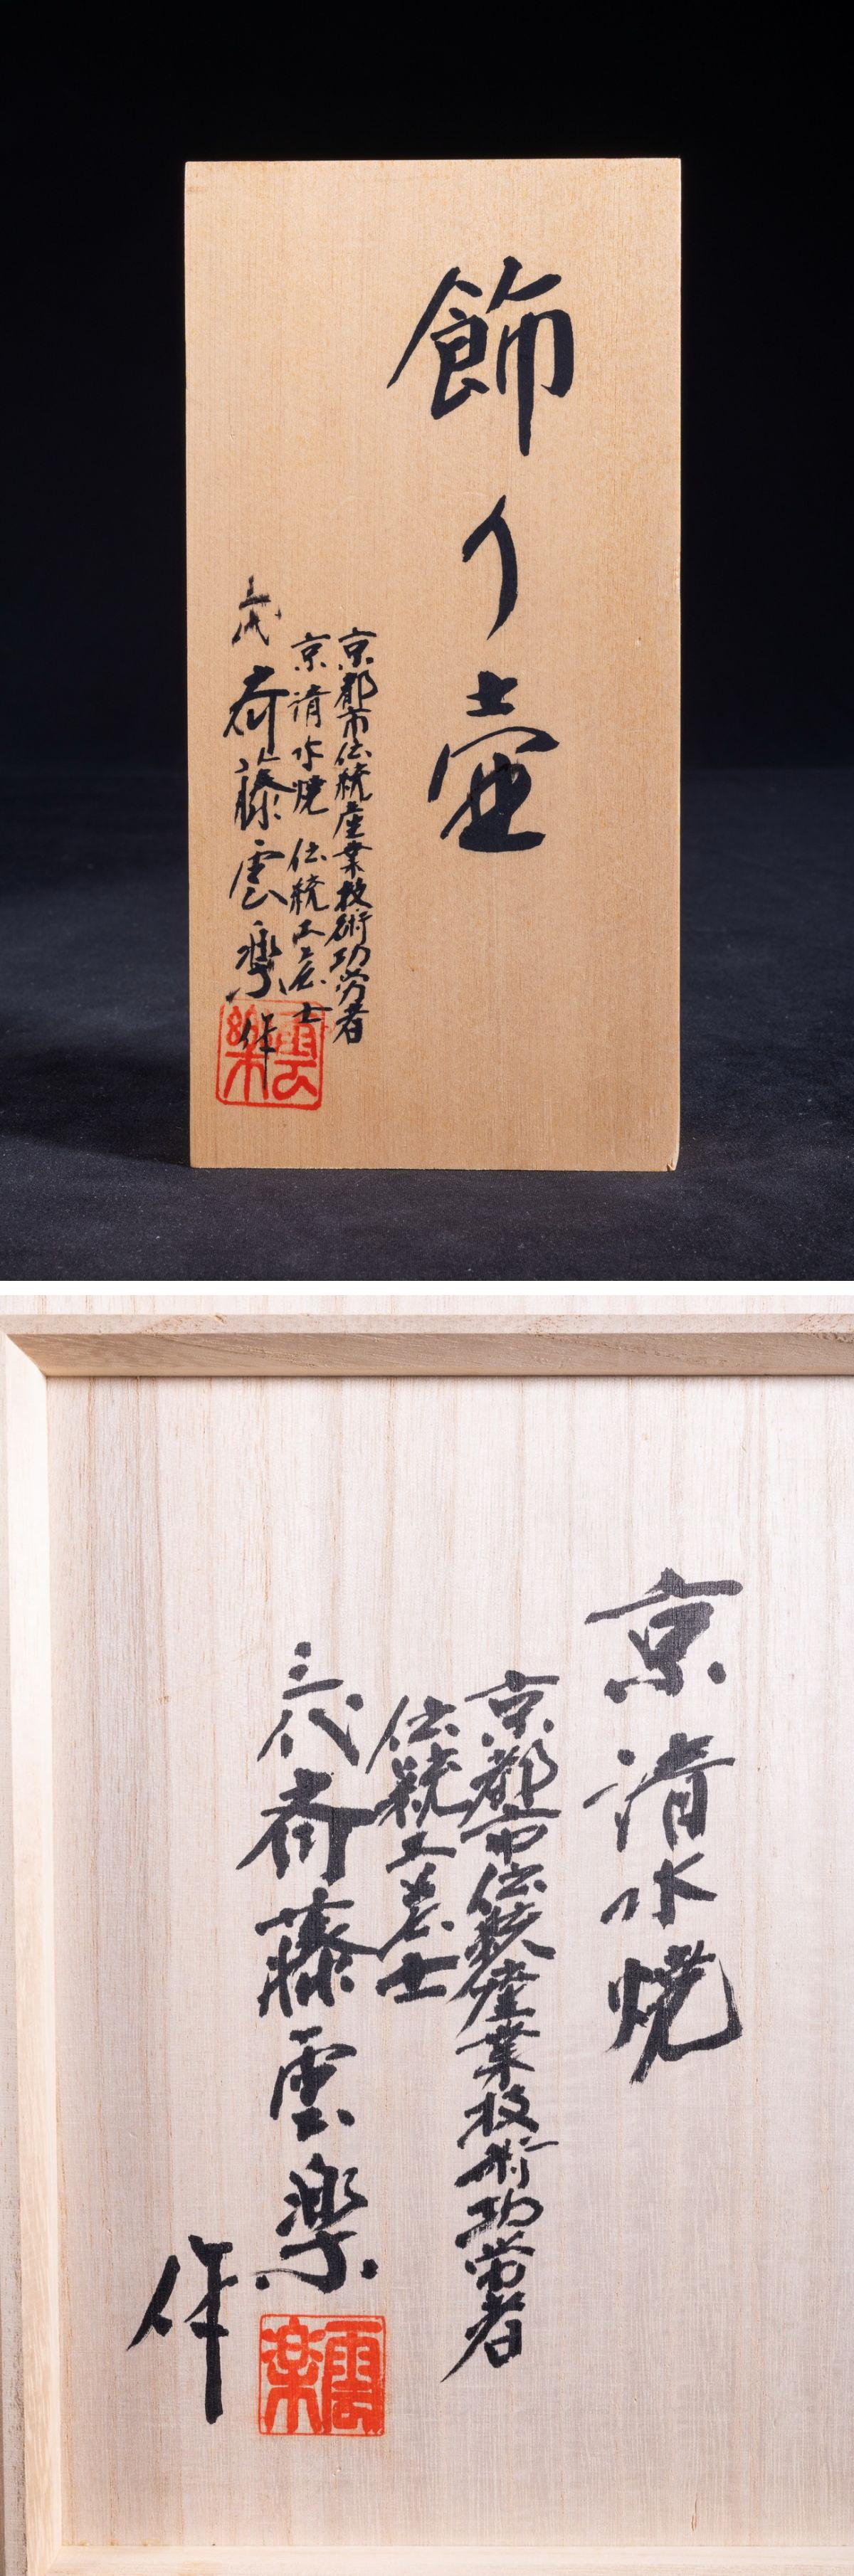 飾り壷
京都市伝統産業技術功労者
京清水焼 伝統工芸士
三代 斉藤雲楽作
雲樂
京清水焼
京都市伝統産業技術功労者
伝統工芸士
三代斉藤雲楽
作
雲楽